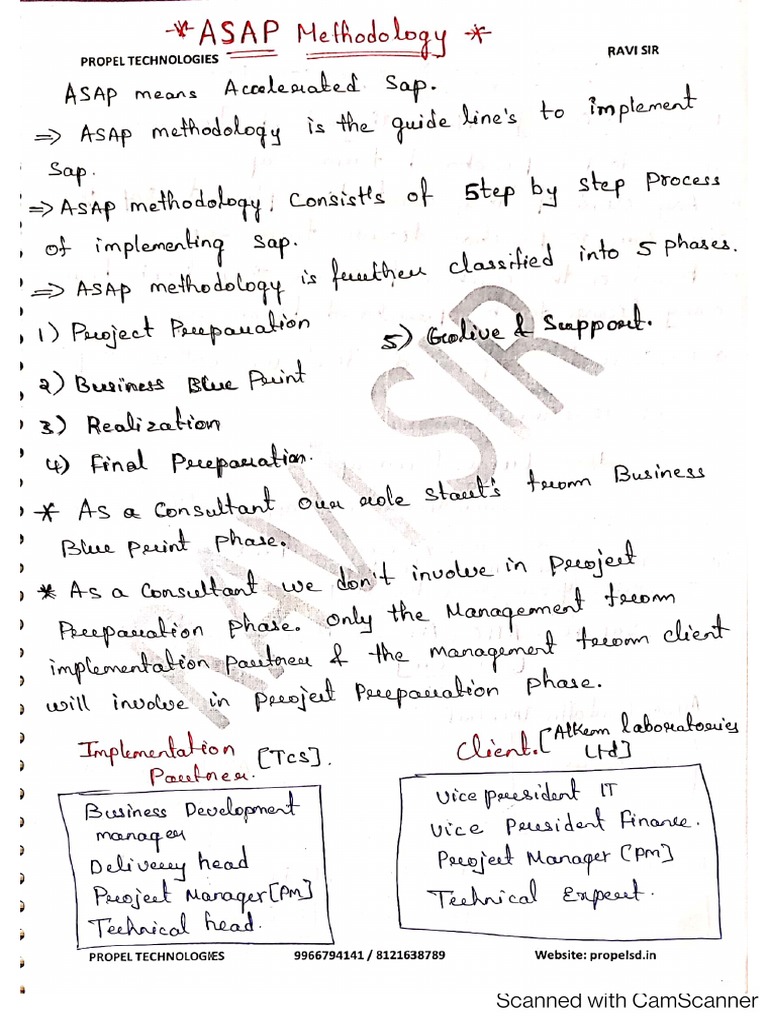 * ASAP Methodology *
PROPEL TECHNOLOGIES RAVI SIR
ASAP means Accelerated Sap.
⇒ ASAP methodology is the guide line's to implement
Sap.
⇒ ASAP methodology, Consist's of Step by step Process
of implementing Sap.
⇒ ASAP methodology is further classified into 5 phases.
1) Project Preparation
5) Golive & Support.
2) Business Blue Print
3) Realization
4) Final Preparation.
* As a Consultant Our role Start's from Business
Blue print phase.
* As a Consultant we don't involve in project
Preparation phase. Only the Management from
implementation Partner & the management from client
will involve in project Preparation phase.
Implementation [TCS].
Partner.
Client. [Alkem laboratories
Ltd]
Business Development
manager
Delivery head
Project Manager [PM]
Technical head.
Vice president IT
Vice President Finance.
Project Manager [PM]
Technical Expert.
RAVI SIR
PROPEL TECHNOLOGIES 9966794141 / 8121638789 Website: propelsd.in
Scanned with CamScanner